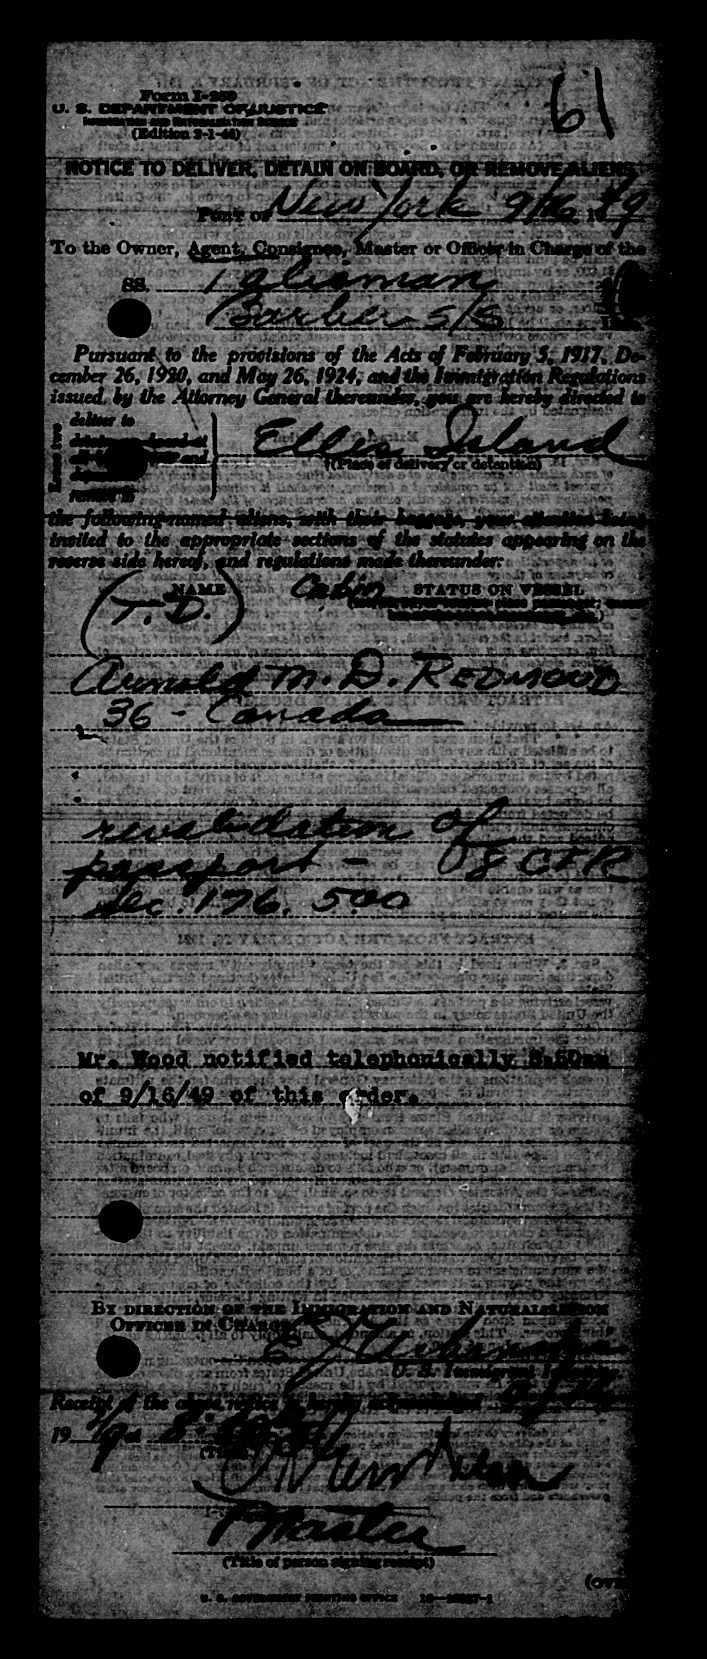 61
Form I-259
U. S. DEPARTMENT OF JUSTICE
IMMIGRATION AND NATURALIZATION SERVICE
(Edition 2-1-46)
NOTICE TO DELIVER, DETAIN ON BOARD, OR REMOVE ALIENS
PORT OF New York 9/16 1949
To the Owner, Agent, Consignee, Master or Officer in Charge of the
SS. Talisman
Barber S/S
Pursuant to the provisions of the Acts of February 5, 1917, De-
cember 26, 1920, and May 26, 1924, and the Immigration Regulations
issued by the Attorney General thereunder, you are hereby directed to
deliver to
Ellis Island
(Place of delivery or detention)
the following-named aliens, with their baggage, your attention being
invited to the appropriate sections of the statutes appearing on the
reverse side hereof, and regulations made thereunder:
NAME Cabin STATUS ON VESSEL
(T. D.)
Arnold M. D. REDMOUD
36 - Canada
revalidation of
passport - 8 CFR
sec. 176. 500
Mr. Wood notified telephonically
of 9/16/49 of this order.
BY DIRECTION OF THE IMMIGRATION AND NATURALIZATION
OFFICER IN CHARGE
U. S. Immigrant Inspector
Receipt of the above notice is hereby acknowledged
19
Master
(Title of person signing receipt)
U. S. GOVERNMENT PRINTING OFFICE